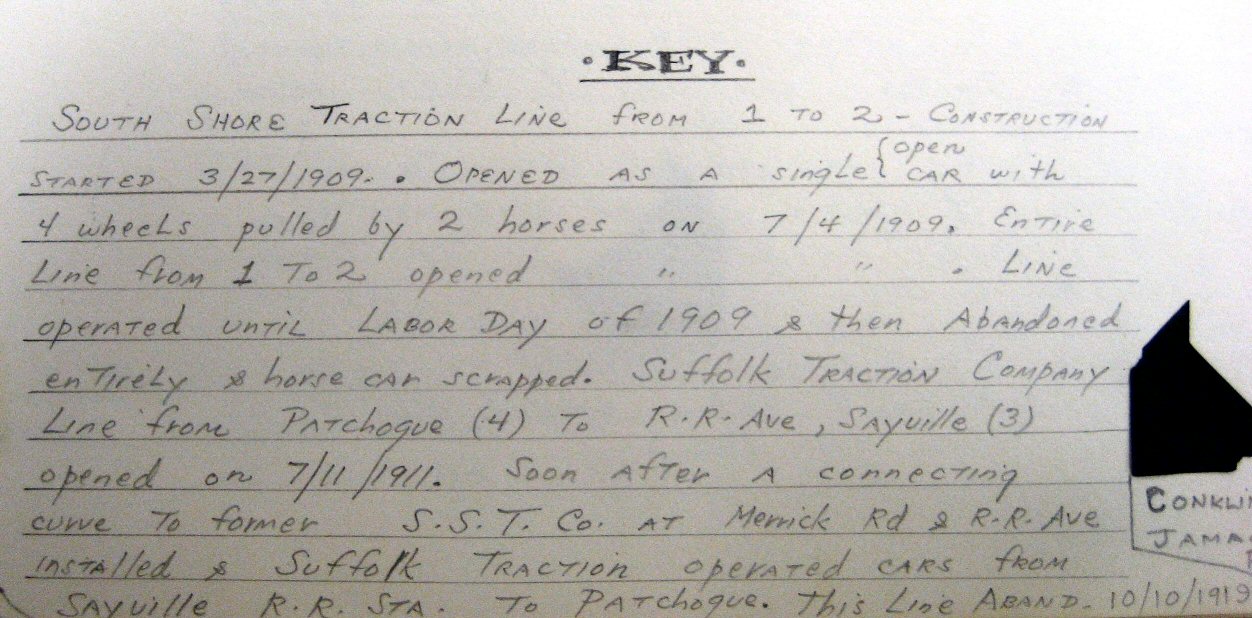 ·KEY·
South Shore Traction Line from 1 to 2 - Construction
started 3/27/1909. . Opened as a single { open car with
4 wheels pulled by 2 horses on 7/4/1909. Entire
Line from 1 to 2 opened " " . Line
operated until Labor Day of 1909 & then Abandoned
entirely & horse car scrapped. Suffolk Traction Company
Line from Patchogue (4) to R.R. Ave, Sayville (3)
opened on 7/11/1911. Soon after a connecting
curve to former S.S.T. Co. at Merrick Rd & R.R. Ave
installed & Suffolk Traction operated cars from
Sayville R.R. Sta. to Patchogue. This Line Aband. 10/10/1919